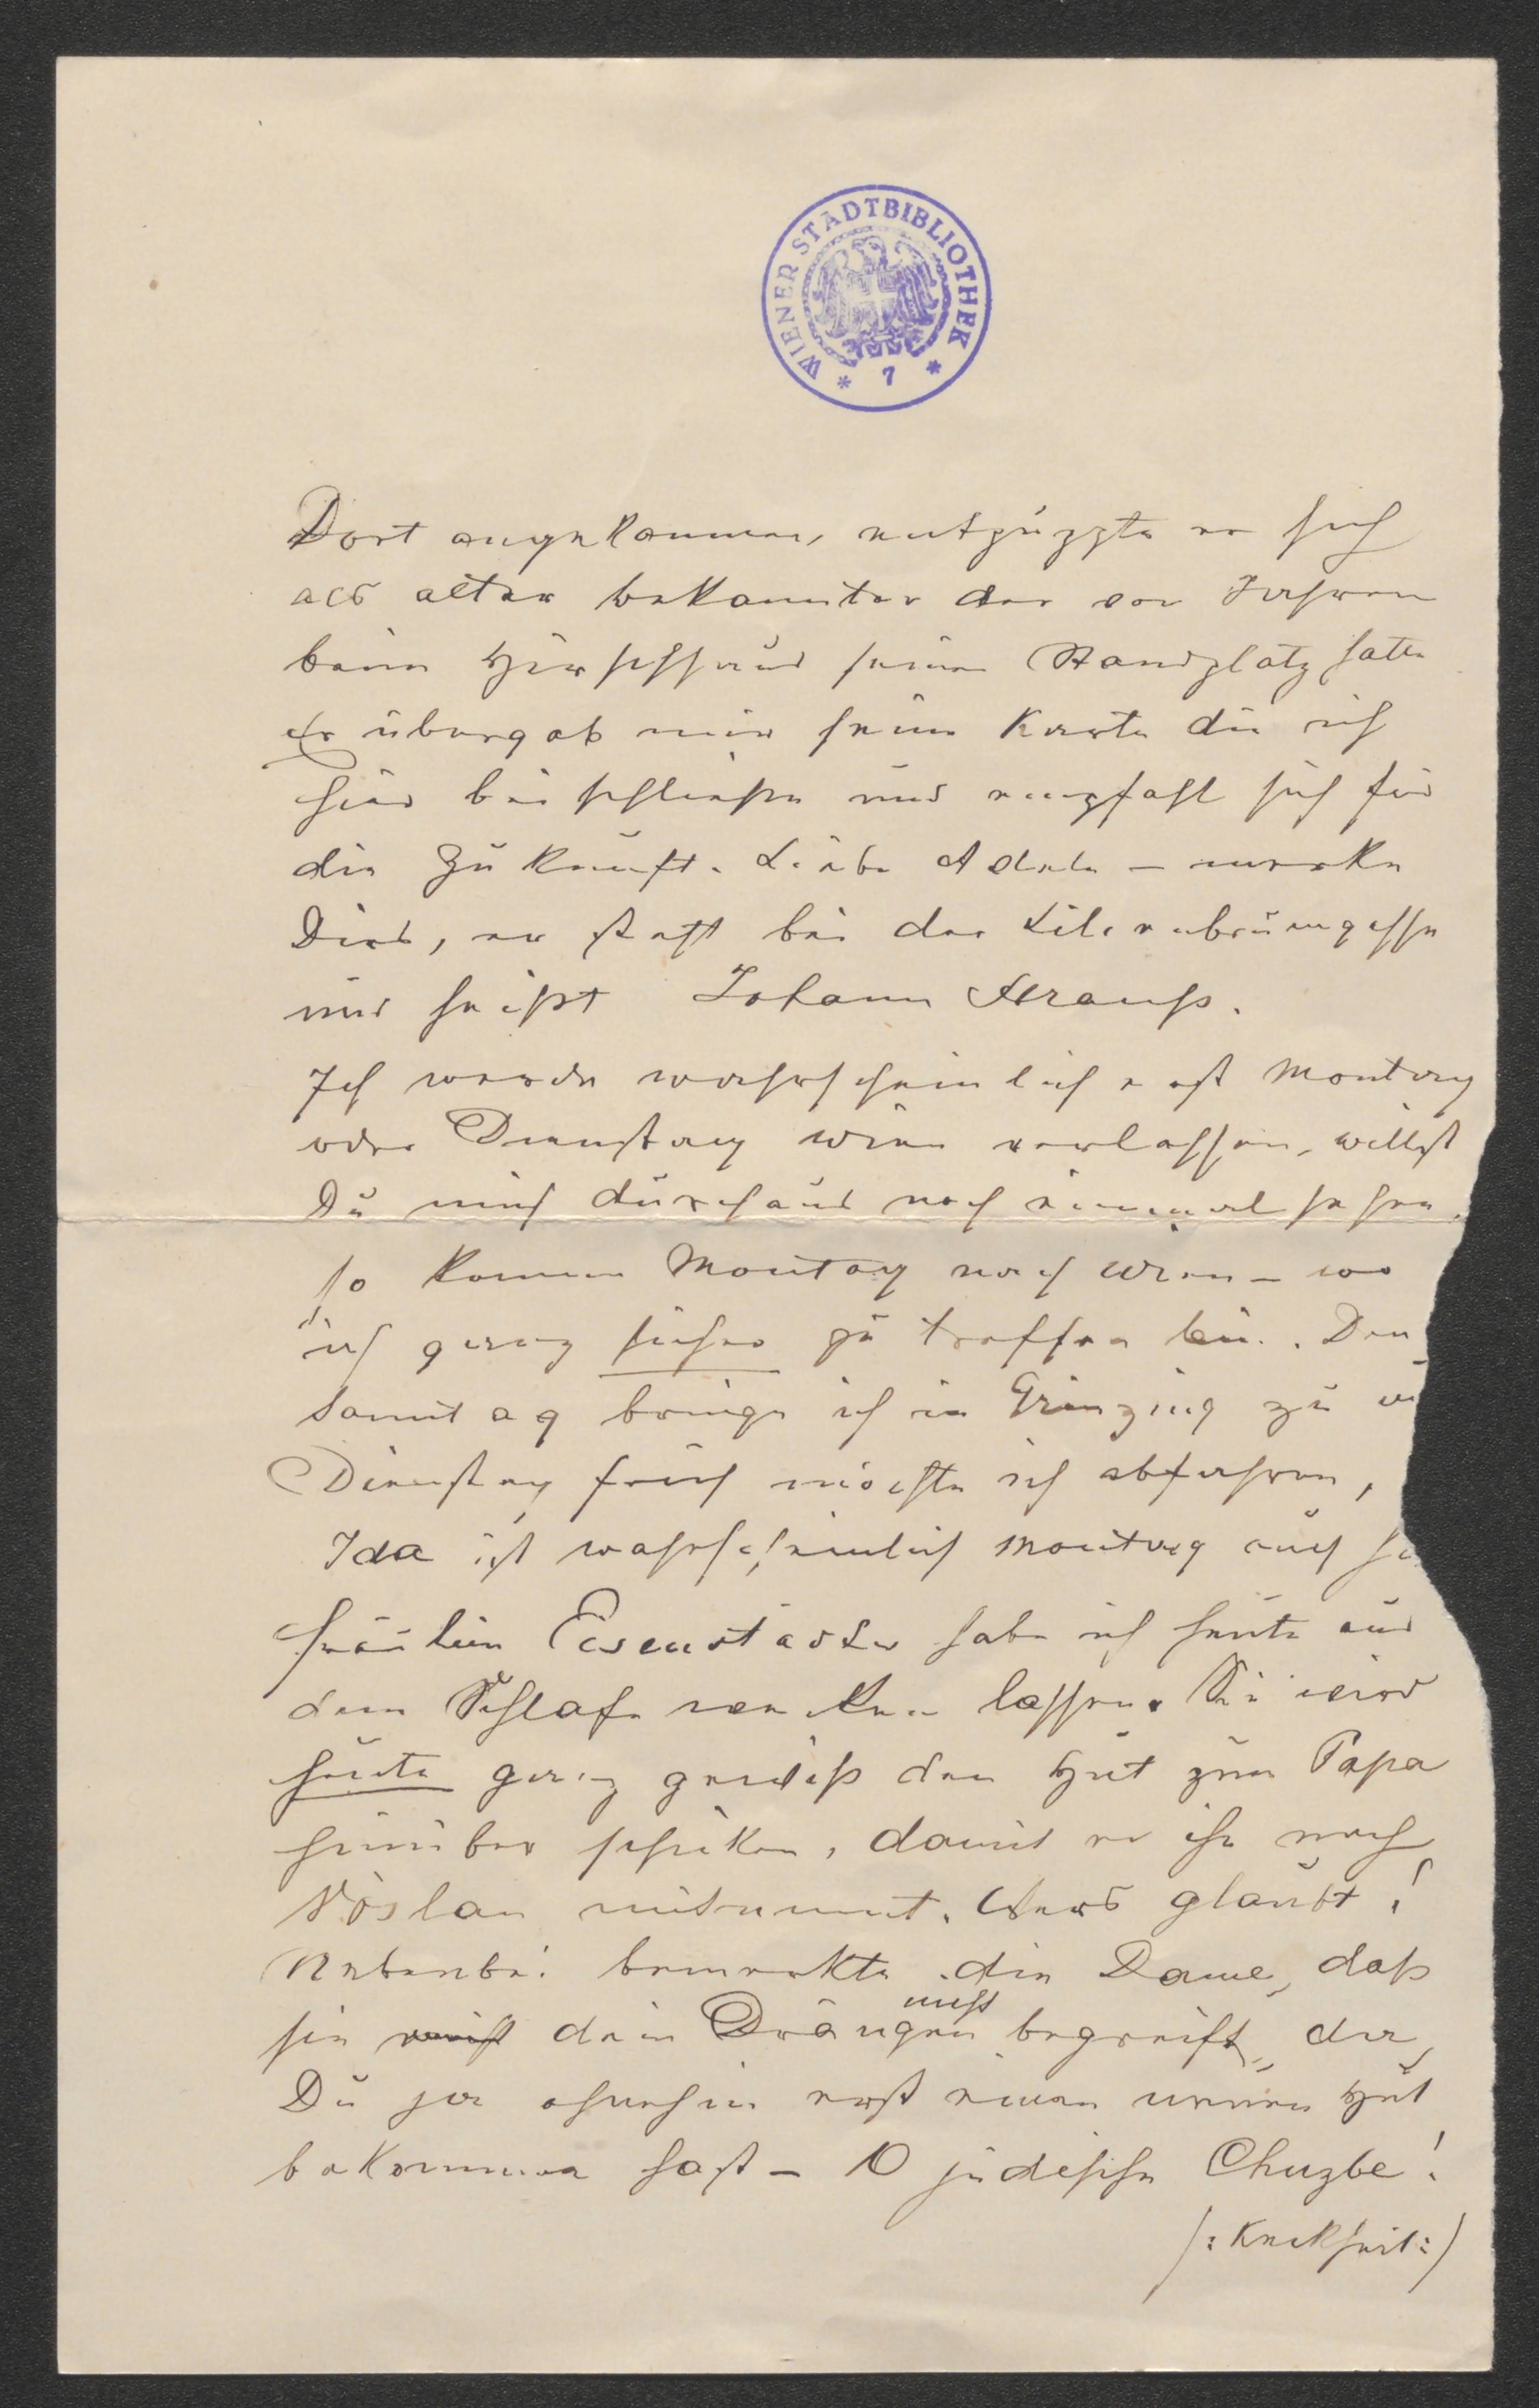 WIENER STADTBIBLIOTHEK
* 7 *
Dort angekommen, entpuppte er sich
als alter bekannter der vor Jahren
beim Hirschhaus seinen Standplatz hatte
Er übergab mir seine Karte die ich
hier beischließe und empfahl sich für
die Zukunft. Liebe Adele – merke
Dirs, er steht bei der Lilienbrungasse
und heißt Johann Strauß.
Ich werde wahrscheinlich erst Montag
oder Dienstag Wien verlassen, willst
Du mich durchaus noch einmal sehen,
so komm Montag nach Wien – wo
ich ganz sicher zu treffen bin. Den
Samstag bringe ich in Grinzing zu
Dienstag früh möchte ich abfahren,
Ida ist wahrscheinlich Montag auch
Fräulein Eisenstädter habe ich heute aus
dem Schlafe wecken lassen. Sie wird
heute ganz gewiß den Hut zum Papa
hinüber schicken, damit er ihn nach
Vöslau mitnimmt. Wers glaubt!
Nebenbei bemerkte die Dame, daß
sie dein Drängen nicht begreift, da
Du ja ohnehin erst einen neuen Hut
bekommen hast – O jüdische Chuzbe!
/: Keckheit :/